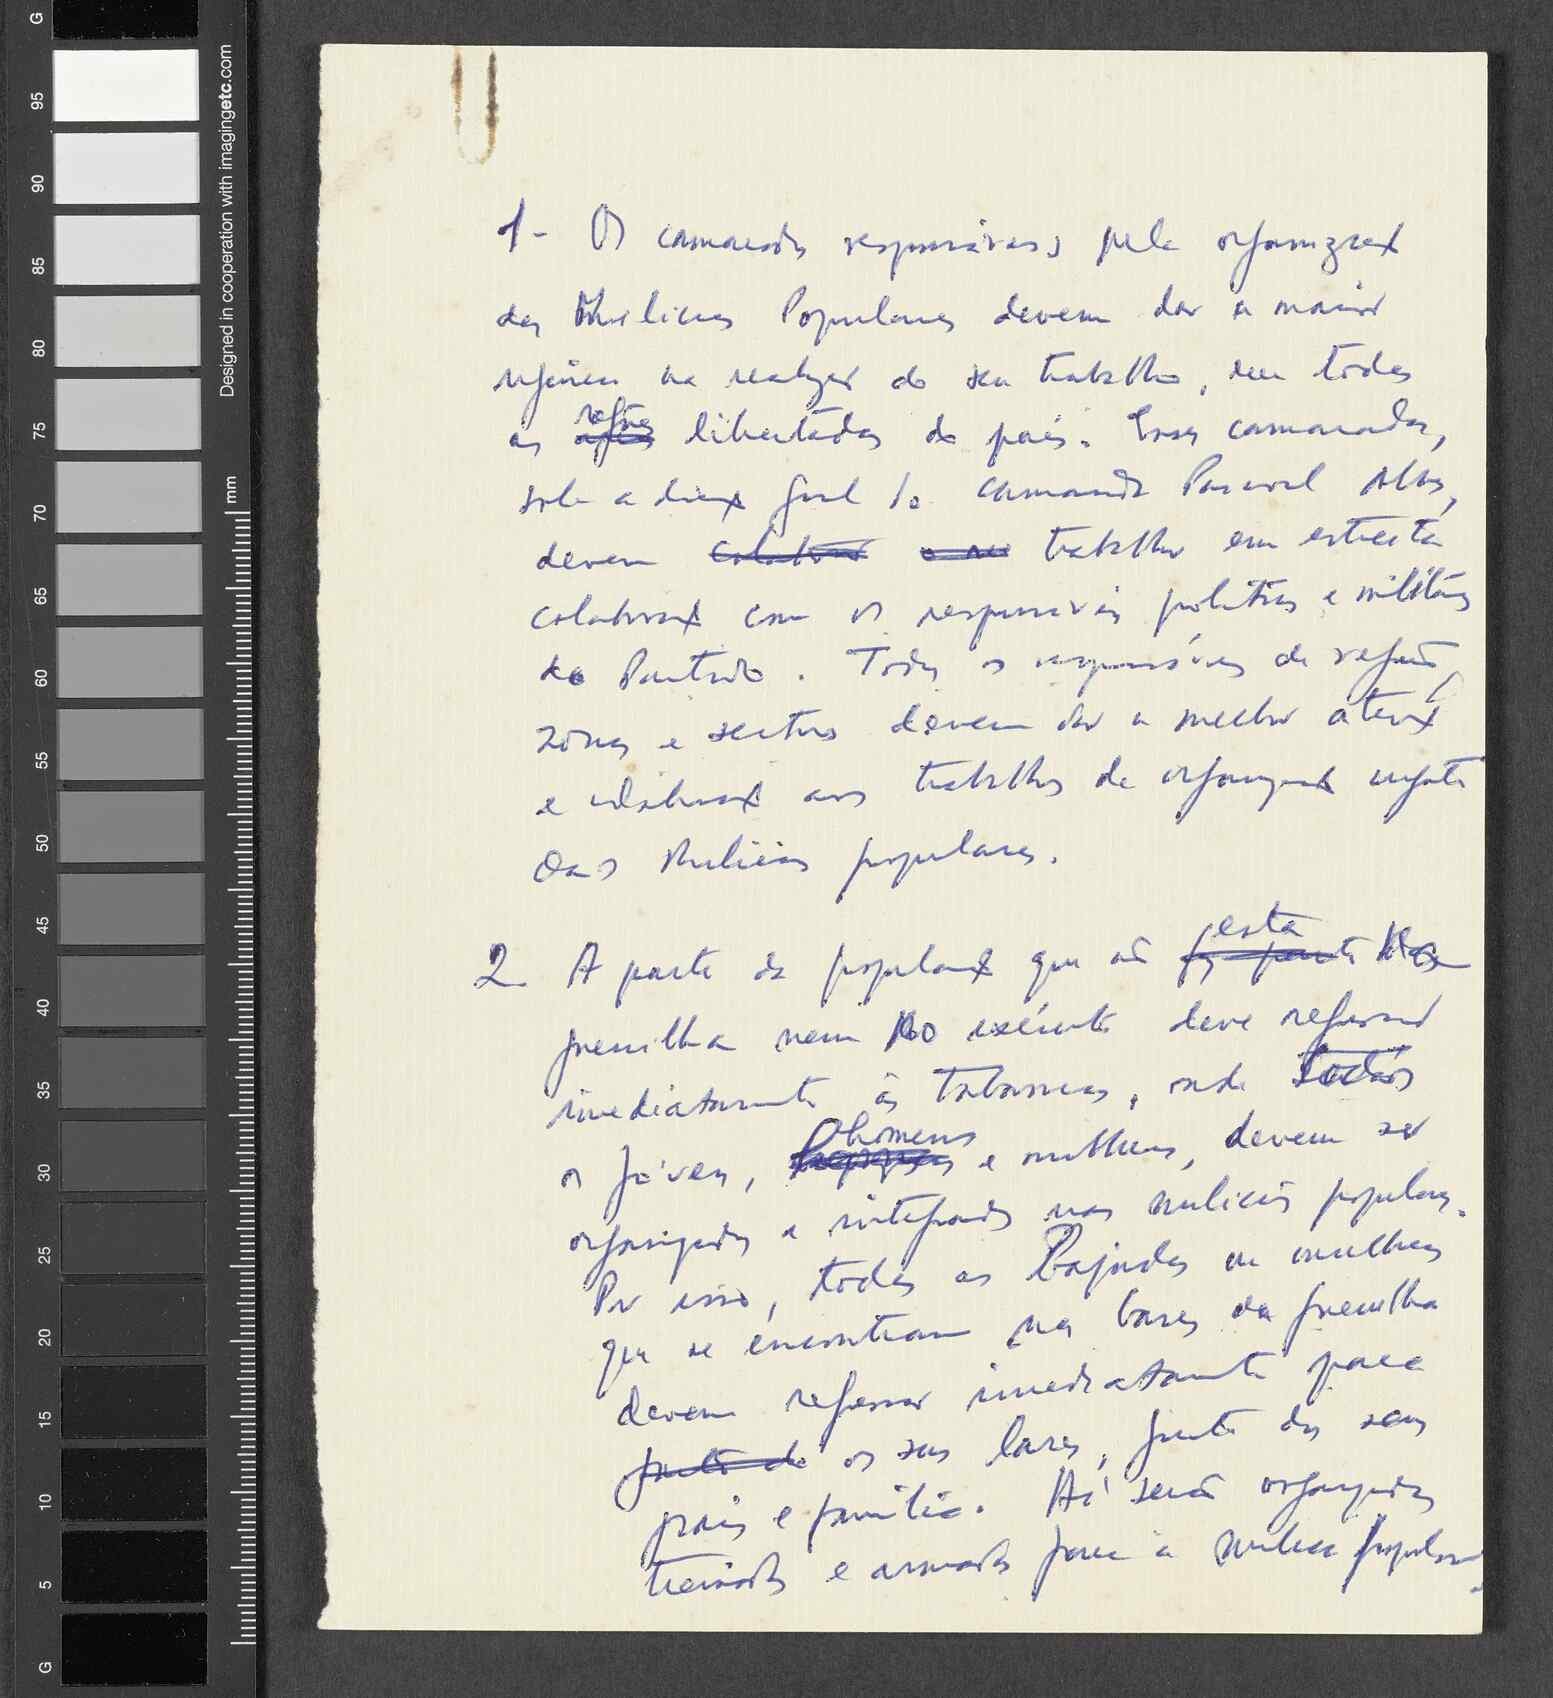 1- Os camaradas responsáveis pela organizaç
das Milicias Populares devem dar a maior
urgência na realizaç do seu trabalho, em todas
as regiões libertadas do país. Esses camaradas,
sob a direcç geral do camarada Pascoal Alves,
devem colaborar trabalhar em estreita
colaboraç com os responsáveis politicos e militares
do Partido. Todos os responsáveis de região,
zonas e sectores devem dar a melhor atenç
e colaboraç aos trabalhos de organizaç urgente
das Milicias populares.
2 A parte da populaç que não está faz parte na
guerrilha nem no exército deve regressar
imediatamente às tabancas, onde todos
os jóvens, homens e mulheres, devem ser
organizados e integrados nas milicias populares.
Por isso, todas as Bajudas ou mulheres
que se encontram nas bases da guerrilha
devem regressar imediatamente para
junto de os seus lares, junto dos seus
pais e familia. Aí serão organizados
treinados e armados para a milicia popular.
G
95
90
85
80
75
70
65
60
55
50
45
40
35
30
25
20
15
10
5
G
Designed in cooperation with imagingetc.com
mm